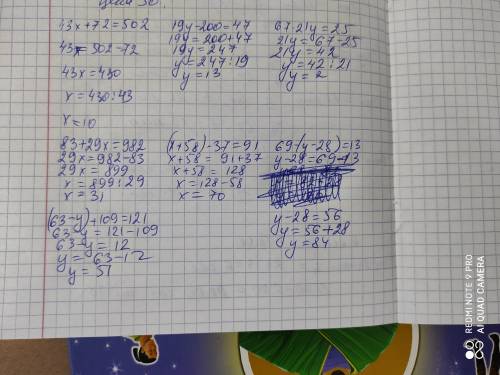 43x+72=502
43x=502-72
43x=430
x=430:43
x=10
19y-200=47
19y=200+47
19y=247
y=247:19
y=13
67-21y=25
21y=67-25
21y=42
y=42:21
y=2
83+29x=982
29x=982-83
29x=899
x=899:29
x=31
(x+58)-37=91
x+58=91+37
x+58=128
x=128-58
x=70
69-(y-28)=13
y-28=69-13
y-28=56
y=56+28
y=84
(63-y)+109=121
63-y=121-109
63-y=12
y=63-12
y=51
REDMI NOTE 9 PRO
AI QUAD CAMERA